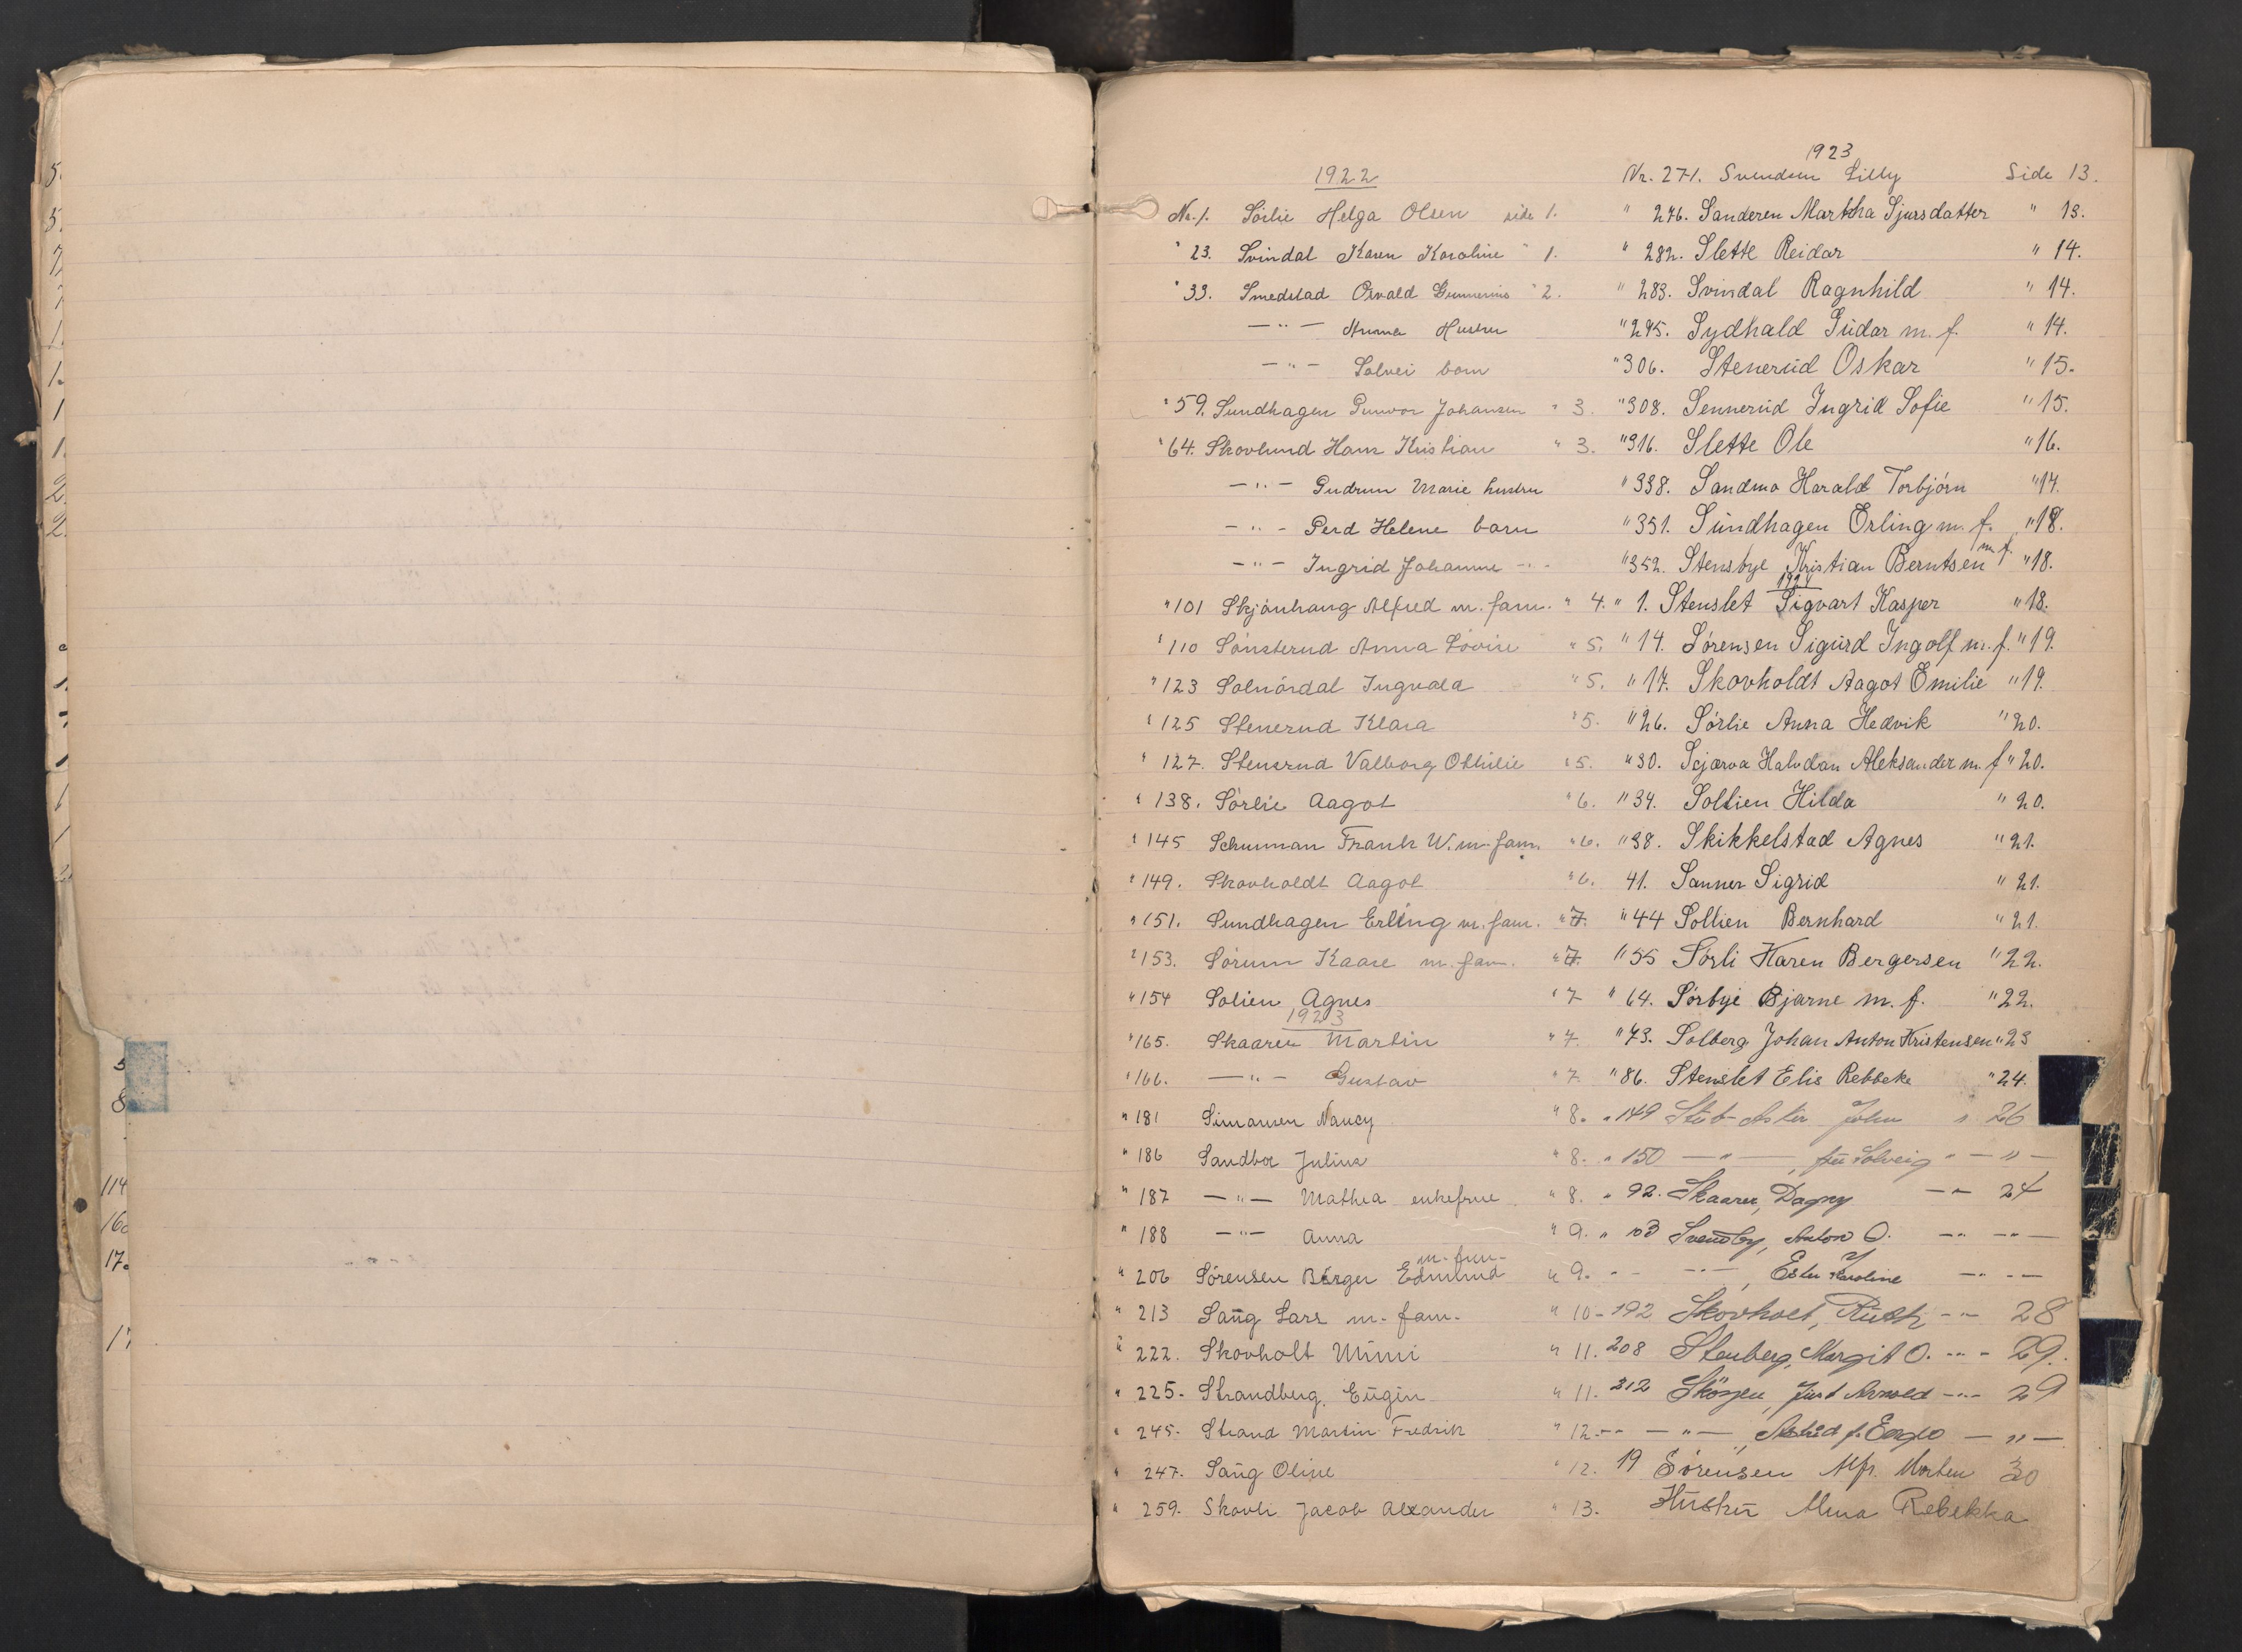 1922
No. 1. Söilie Helga Olsen side 1.
" 23. Svindal Karen Karoline " 1.
" 33. Smedstad Osvald Gunnerius " 2.
— " — Anna Hustru
— " — Solvei barn
" 59. Sundhagen Gunvor Johansen " 3.
" 64. Skovlund Hans Kristian " 3.
— " — Gudrun Marie hustru
— " — Gerd Helene barn
— " — Ingrid Johanne — " —
" 101 Skjönhaug Alfred m. fam. " 4.
" 110 Sönsterud Anna Lovise " 5.
" 123 Solnördal Ingvalda " 5.
" 125 Stenerud Klara " 5.
" 127. Stensrud Valborg Othilie " 5.
" 138. Sörlie Aagot " 6.
" 145 Schumman Frank W. m. fam. " 6.
" 149. Skovholdt Aagot " 6.
" 151. Sundhagen Erling m. fam. " 7.
" 153. Sörum Kaare m. fam. " 7.
" 154 Solien Agnes " 7
1923
" 165. Skaaren Martin " 7.
" 166. — " — Gustav " 7.
" 181 Simonsen Nancy " 8.
" 186 Sandbor Julius " 8.
" 187 — " — Mathea enkefrue " 8.
" 188 — " — Anna " 9.
m. fam.
" 206 Sörensen Birger Edmund " 9.
" 213 Saug Lars m. fam. " 10
" 222. Skovholt Mimi " 11.
" 225. Strandberg, Eugin " 11.
" 245. Strand Martin Fredrik " 12
" 247. Saug Oline " 12.
" 259. Skovli Jacob Alexander " 13.
1923
Nr. 271. Svendsen Lilly Side 13.
" 276. Sanderen Martha Sjursdatter " 13.
" 282. Slette Reidar " 14.
" 283. Svindal Ragnhild " 14.
" 295. Sydhald Gudar m. f. " 14.
" 306. Stenerud Oskar " 15.
" 308. Sennerud Ingrid Sofie " 15.
" 316. Slette Ole " 16.
" 338. Sandmo Harald Torbjörn " 17.
" 351. Sundhagen Erling m. f. " 18.
" 352. Stensbye Kristian Berntsen m. f. " 18.
" 1. Stenslet Sigvart Kasper " 18.
" 14. Sørensen Sigurd Ingolf m. f. " 19.
" 17. Skovholdt Aagot Emilie " 19.
" 26. Sørlie Anna Hedvik " 20.
" 30. Halvdan Aleksander m. f " 20.
" 34. Sollien Hilda " 20.
" 38. Skikkelstad Agnes " 21.
41. Sanner Sigrid " 21.
" 44 Sollien Bernhard " 21.
" 55 Sørli Karen Bergersen " 22.
" 64. Sørbye Bjarne m. f. " 22.
" 73. Solberg Johan Anton Kristensen " 23
" 86. Stenslet Elis Rebbeke " 24.
" 149 John s. 26
" 150 — " — Solveig " — " —
" 92. Skaaren, Dagny — " — 24
" 103 Svendby, Anton O. — " — " —
— " —, Ester Karoline — " —
192 Skovholt, Ruth — " — 28
208 Stenberg, Margit O. — " — 29.
212 — " — 29
— " —, Astrid — " —
19 Sörensen Alfr. Morten 30
Hustru Alma Rebekka
5
8
114